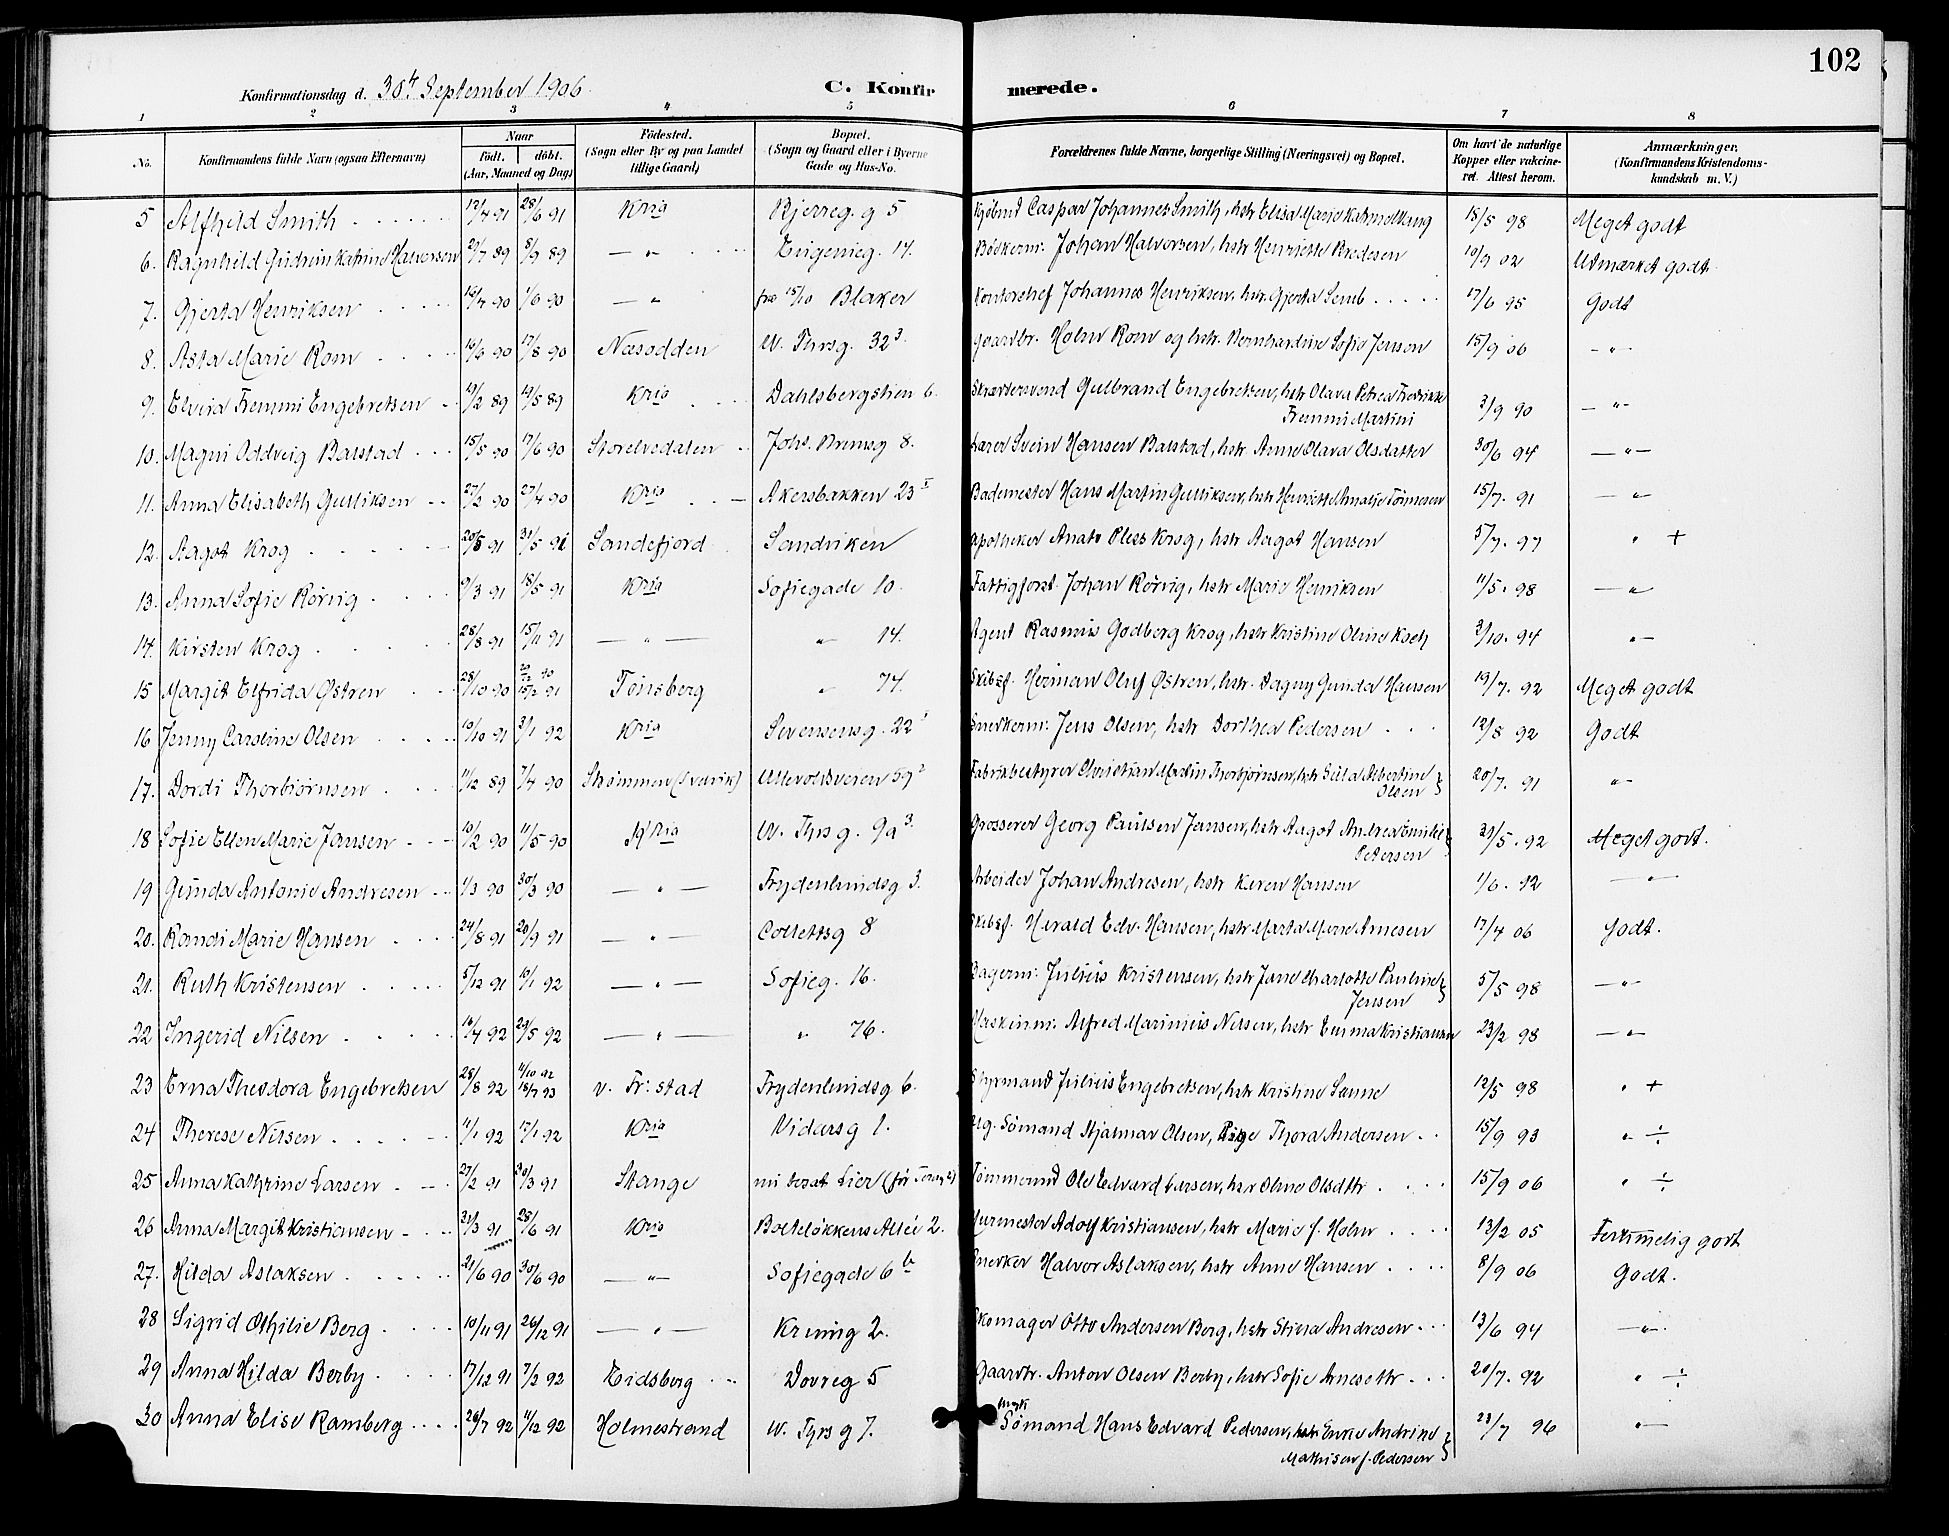 102
Konfirmationsdag d. 30t September 1906.
C. Konfirmerede.
1 2 3 4 5 6 7 8
No. Konfirmandens fulde Navn (ogsaa Efternavn) Naar födt. döbt. (Aar, Maaned og Dag) Födested. (Sogn eller By og paa Landet tillige Gaard) Bopæl. (Sogn og Gaard eller i Byerne Gade og Hus-No. Forældrenes fulde Navne, borgerlige Stilling (Næringsvei) og Bopæl. Om havt de naturlige Kopper eller vakcineret. Attest herom. Anmærkninger. (Konfirmandens Kristendomskundskab m. V.)
5 Alfhild Smith 12/4 91 28/6 91 Kria Bjerreg. g 5 Kjöbmd Caspar Johannes Smith, hstr Elisa Marie 18/5 98 Meget godt
6. Ragnhild Gudrun Katrine Halvorsen 29/7 89 8/9 89 — " Eugenieg. 14. Bödkerm: Johan Halvorsen, hstr Henriette Bredesen 10/9 02 Udmærket godt.
7. Gjerta Henriksen 16/4 90 1/6 90 — " fra 15/10 Blaker Kontorchef Johannes Henriksen, hstr. Gjerta Lemb 17/6 95 Godt
8. Asta Marie Rom 14/6 90 17/8 90 Næsodden W. Thrsg. 32 3. Gaardbr. Holm Rom og hstr. Bernhardine Sofie Jenson 15/9 06 — " —
9. Elvira Fremmi Engebretsen 19/2 89 19/5 89 Kria Dahlsbergstien 6. Skrædersvend Gulbrand Engebretsen, hstr Olava Petrea Fredrikke Fremmi Martini 3/9 90 — " —
10. Magni Oddveig Batstad 15/5 90 17/6 90 Storelvedalen Johs. Brunsg 8. Lærer Svein Hansen Batstad, hstr. Anne Olava Olsdatter 30/6 94 — " —
11. Anna Elisabeth Gulliksen 27/2 90 27/4 90 Kria Akersbakken 23 I Bademester Hans Martin Gulliksen, hstr Henriette Amalie Tönnesen 15/7. 91 — "
12. Aagot Krog 20/5 91 31/5 91 Sandefjord Sandviken Apotheker Anato Pless Krog, hstr Aagot Hansen 5/7. 97 " +
13. Anna Sofie Rörvig 9/3 91 18/5 91 Kria Sofiegade 10. Fattigforst. Johan Rörvig, hstr Marie Henriksen 11/5. 98 — "
14. Kirsten Krog 28/8 91 15/11 91 — " — " 14. Agent Rasmus Godberg Krog, hstr Kristine Oline Koch 3/10. 94 " —
15 Margit Elfrida Østren 28/10 90 15/2 91 Tönsberg " 74. Skibsf. Herman Oluf Østren, hstr. Dagny Gunda Hansen 19/7. 92 Meget godt
16 Jenny Caroline Olsen 10/10 91 3/1 92 Kria Sevensensg. 22 I Snedkerm: Jens Olsen, hstr Dorthea Pedersen 12/8 92 Godt
17. Dordi Thorbiörnsen 11/12 89 7/4 90 Strömmen (Svelvik) Ullevoldsveien 59 2 Fabrikbestyrer Christian Martin Thorbjörnsen, hstr Gusta Albertine Olsen 20/7. 91 " —
18 Sofie Ellen Marie Jansen 10/2 90 11/5 90 Kria W. Thrs g. 9a 3. Grosserer Georg Paulsen Jansen, hstr Aagot Andrea Emilie Petersen 29/5. 92 Meget godt.
19 Gunda Antonie Andresen 1/3 90 30/3 90 — " — Frydenlundsg 3. Arbeider Johan Andresen, hstr Karen Hansen 1/6. 92 — " —
20. Randi Marie Hansen 24/8 91 20/9 91 — " — Collettsg 8 Skibsf. Harald Edv. Hansen, hstr Marta Marie Arnesen 17/4 06 Godt.
21. Ruth Kristensen 5/12 91 10/1 92 — " — Sofieg. 16. Bagerm: Julius Kristensen, hstr Jane Charlotte Pauline Jensen 5/5 98 — " —
22 Ingerid Nilsen 16/4 92 29/5 92 — " — " 76. Maskinm. Alfred Marinius Nilsen, hstr Emma Kristiansen 23/2 98 — " —
23 Erna Theodora Engebretsen 28/8 92 11/10 92 18/7 93 v. Fr:stad Frydenlundsg 6. Styrmand Julius Engebretsen, hstr Kristine Sanne 12/5 98 " +
24 Therese Nilsen 11/1 92 17/1 92 Kria Vidarsg 1. Ug. Sömand Hjalmar Olsen, Pige Thora Andersen 15/9 93 " ÷
25 Anna Kathrine Larsen 27/2 91 30/3 91 Stange nu bosat Lier Tömmermd Ole Edvard Larsen, hstr Oline Olsdtr 15/9 06 " ÷
26 Anna Margit Kristiansen 31/3 91 28/6 91 Kria Bolteløkkens Allé 2. Murmester Adolf Kristiansen, hstr Marie f. Holm 13/2 05 Fortrinnelig godt
27. Hilda Aslaksen 21/6 90 30/6 90 — " — Sofiegade 6 b Snedker Halvor Aslaksen, hstr Anne Hansen 8/9 06 Godt.
28 Sigrid Othilie Berg 10/11 91 26/12 91 — " — Krumg 2. Skomager Otto Andersen Berg, hstr Stina Andresen 13/6 94 — " —
29 Anna Hilda Berby 17/12 91 7/2 92 Eidsberg Dovreg 5 Gaardbr. Anton Olsen Berby, hstr Sofie Arnesdtr 20/7. 92 " ÷
30 Anna Elise Ramberg 26/7 92 11/12 92 Holmestrand W. Tyrs g 7. Sömand Hans Edvard Pedersen, Enke Andrine Mathisen f. Pedersen 23/7 96 " —